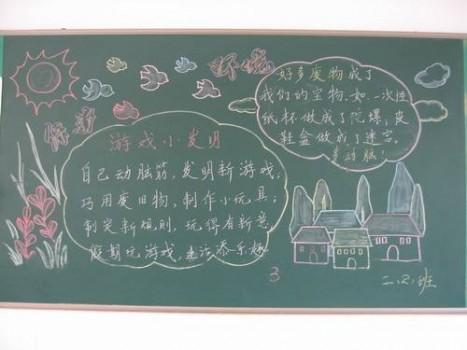 游戏小发明
自己动脑筋，发明新游戏，
巧用废旧物，制作小玩具；
制定新规则，玩得有新意，
假期玩游戏，生活添乐趣。
好多废物成了
我们的宝物，如：一次性
纸杯做成了陀螺，皮
鞋盒做成了迷宫。
3
二.(2).班